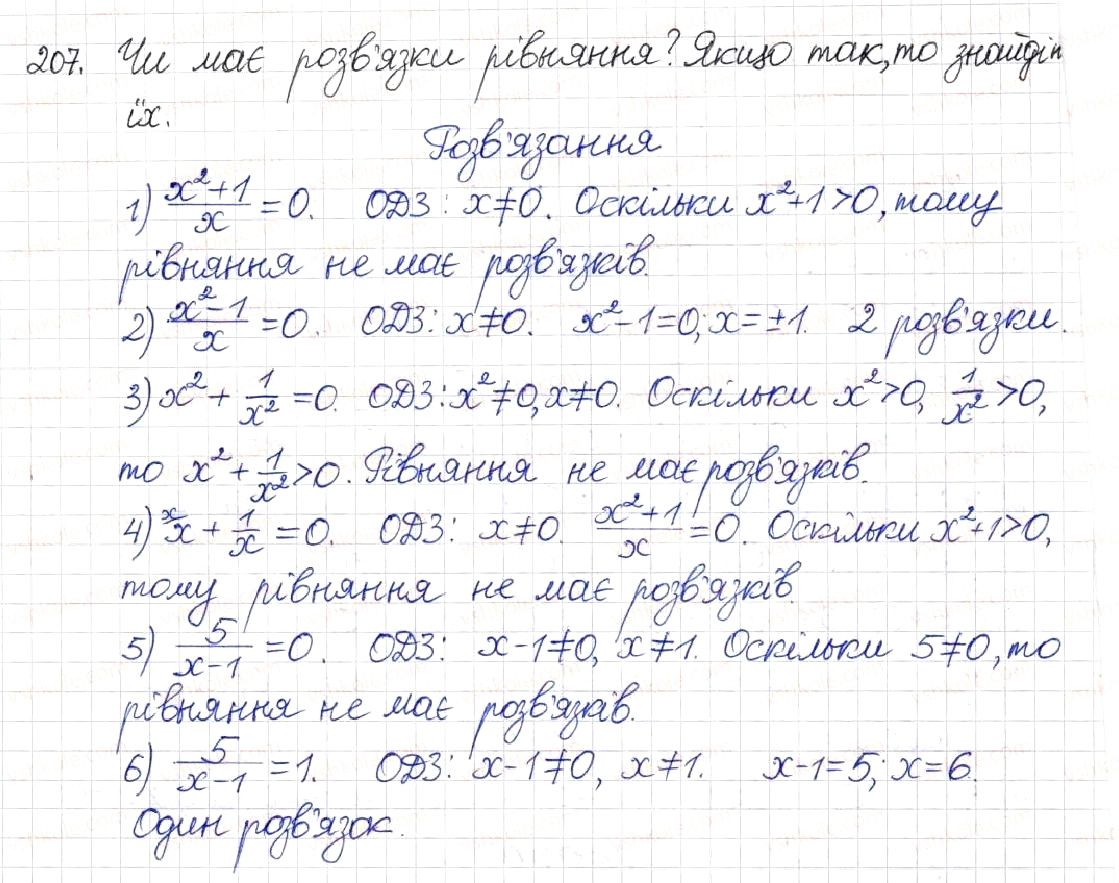 207. Чи має розв'язки рівняння? Якщо так, то знайдіт
їх.
Розв'язання
1) (x²+1)/x = 0. ОДЗ: x≠0. Оскільки x²+1>0, тому
рівняння не має розв'язків.
2) (x²-1)/x = 0. ОДЗ: x≠0. x²-1=0; x=±1. 2 розв'язки.
3) x² + 1/x² = 0. ОДЗ: x²≠0, x≠0. Оскільки x²>0, 1/x²>0,
то x² + 1/x² > 0. Рівняння не має розв'язків.
4) ˣx + 1/x = 0. ОДЗ: x≠0. (x²+1)/x = 0. Оскільки x²+1>0,
тому рівняння не має розв'язків.
5) 5/(x-1) = 0. ОДЗ: x-1≠0, x≠1. Оскільки 5≠0, то
рівняння не має розв'язків.
6) 5/(x-1) = 1. ОДЗ: x-1≠0, x≠1. x-1=5; x=6.
Один розв'язок.